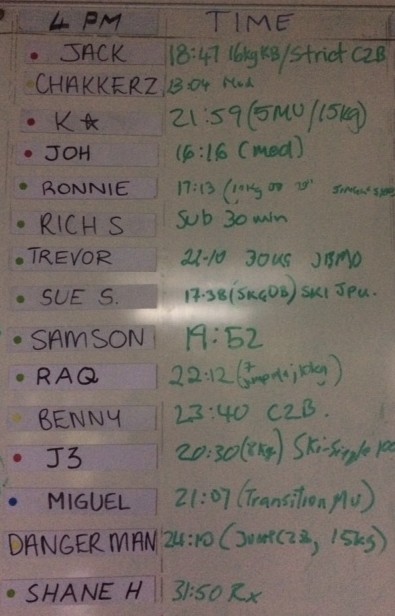 4 PM TIME
JACK 18:47 16kg KB/Strict C2B
CHAKKERZ 23:04 Mod
K☆ 21:59 (5MU/15kg)
JOH 16:16 (mod)
RONNIE 17:13
RICH S Sub 30 min
TREVOR 22-10 30US
SUE S. 17:38 (5KGDB) SKI JPU.
SAMSON 19:52
RAQ 22:12
BENNY 23:40 C2B.
J3 20:30 (8kg) Ski-Single 100
MIGUEL 21:07 (Transition MU)
DANGERMAN 24:10 C2B, 15kg)
SHANE H 31:50 Rx